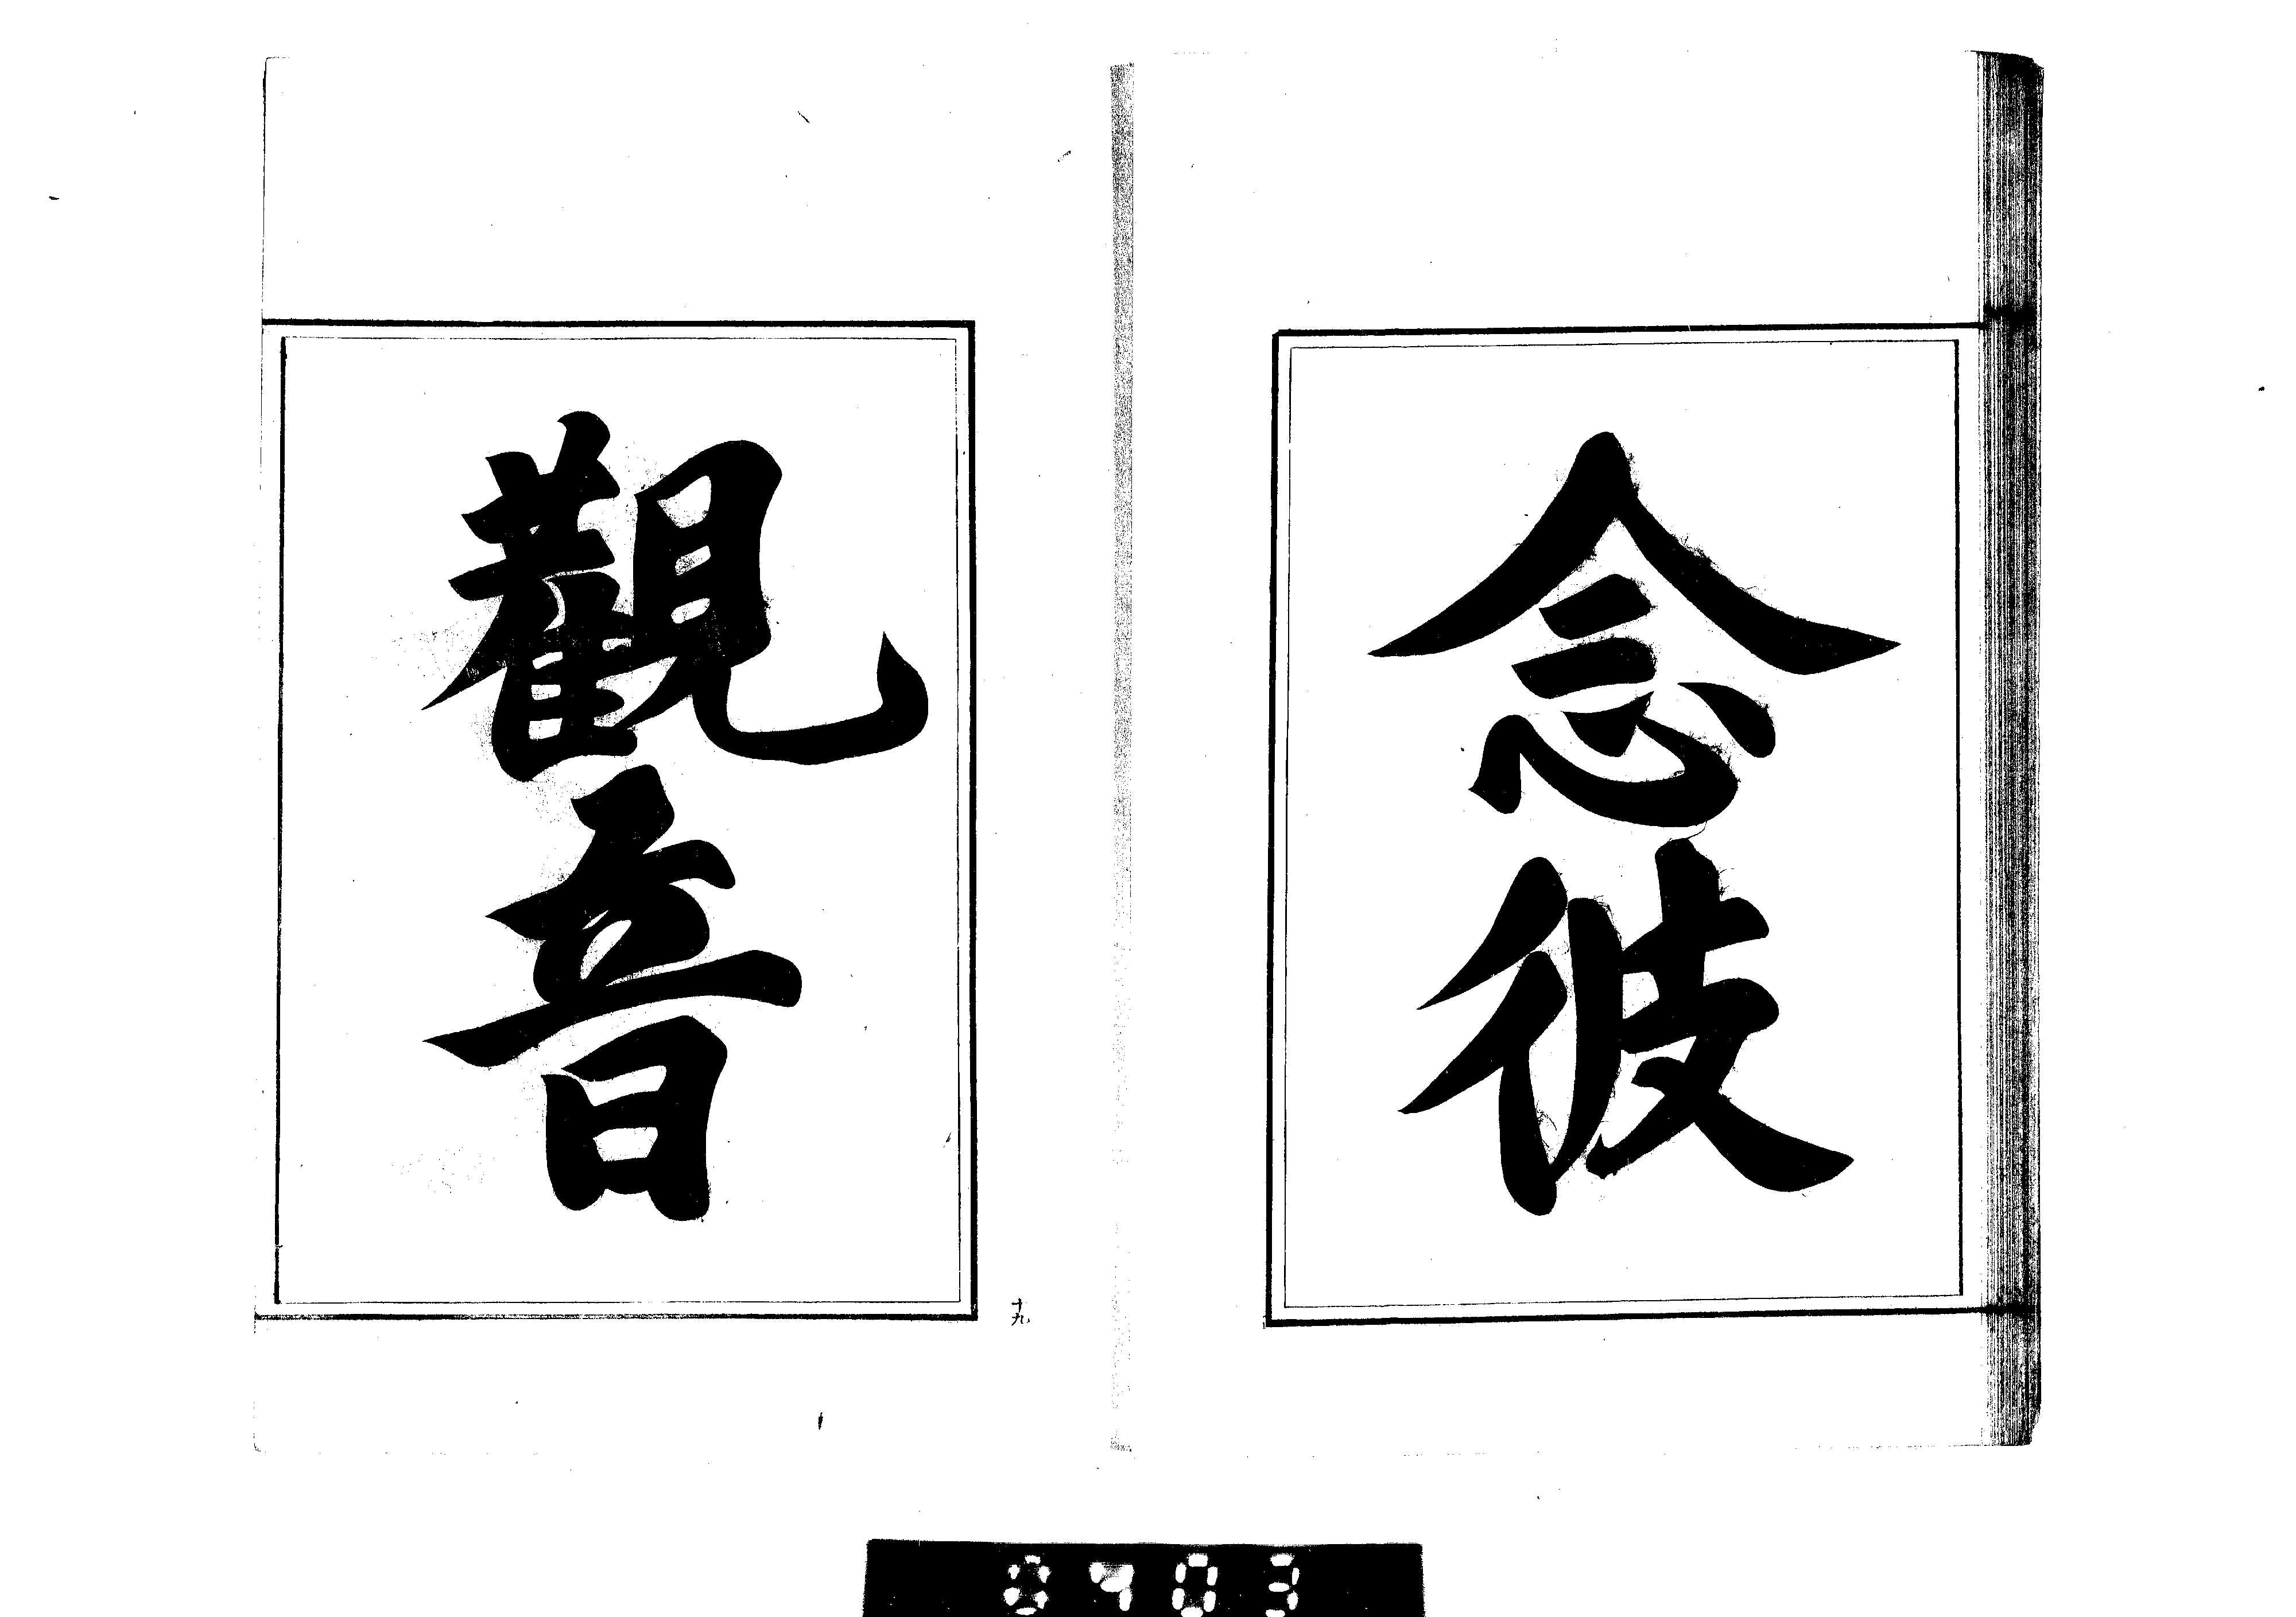 念彼
觀音
十九